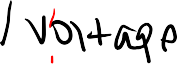 / voltage